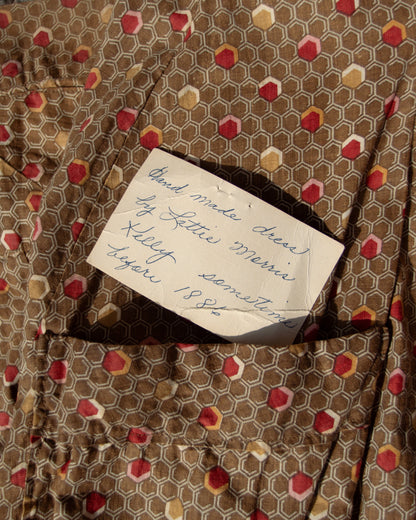 Hand made dress
by Lottie Morris
Kelly sometime
before 1886